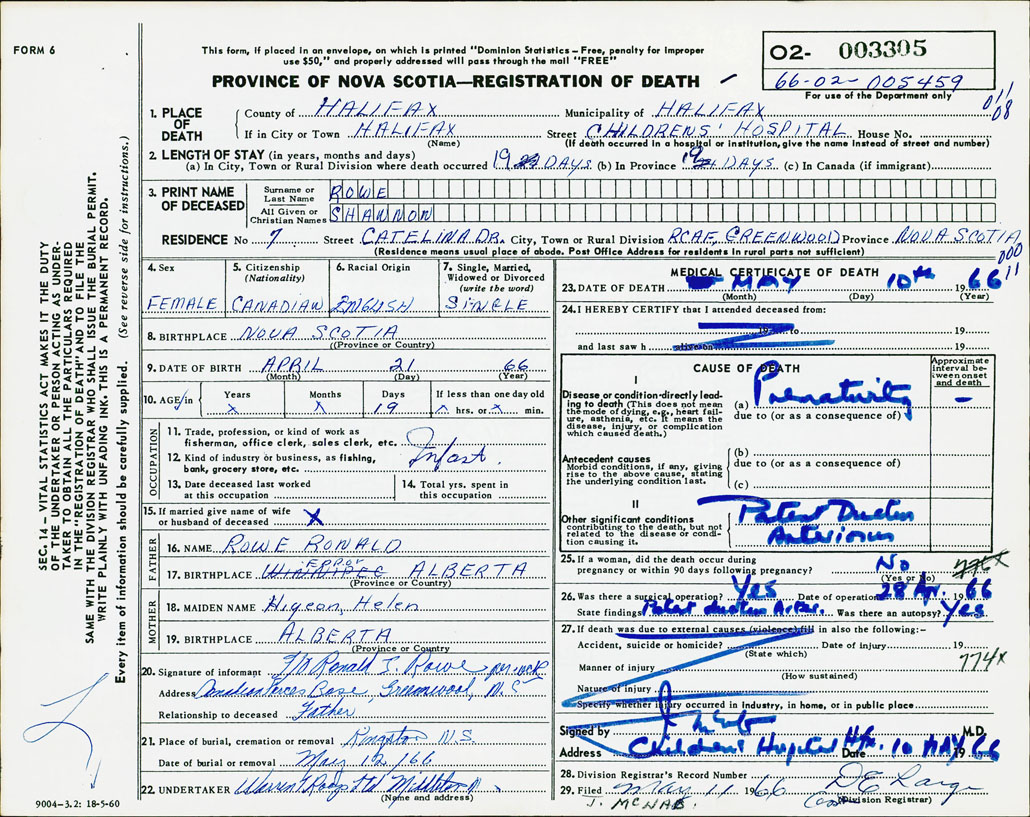 FORM 6
This form, if placed in an envelope, on which is printed "Dominion Statistics – Free, penalty for improper
use $50," and properly addressed will pass through the mail "FREE"
PROVINCE OF NOVA SCOTIA—REGISTRATION OF DEATH
02- 003305
66-02-005459
For use of the Department only
011
08
1. PLACE OF DEATH
County of HALIFAX Municipality of HALIFAX
If in City or Town HALIFAX Street CHILDRENS' HOSPITAL House No.
(Name) (If death occurred in a hospital or institution, give the name instead of street and number)
2. LENGTH OF STAY (in years, months and days)
(a) In City, Town or Rural Division where death occurred 19 DAYS (b) In Province 19 DAYS (c) In Canada (if immigrant)
3. PRINT NAME OF DECEASED
Surname or Last Name ROWE
All Given or Christian Names SHANNON
RESIDENCE No 7 Street CATELINA DR. City, Town or Rural Division RCAF GREENWOOD Province NOVA SCOTIA
(Residence means usual place of abode. Post Office Address for residents in rural parts not sufficient)
000
11
4. Sex
FEMALE
5. Citizenship (Nationality)
CANADIAN
6. Racial Origin
ENGLISH
7. Single, Married, Widowed or Divorced (write the word)
SINGLE
8. BIRTHPLACE NOVA SCOTIA
(Province or Country)
9. DATE OF BIRTH APRIL 21 66
(Month) (Day) (Year)
10. AGE in Years Months Days If less than one day old
x x 19 x hrs. or x min.
OCCUPATION
11. Trade, profession, or kind of work as fisherman, office clerk, sales clerk, etc.
Infant.
12. Kind of industry or business, as fishing, bank, grocery store, etc.
13. Date deceased last worked at this occupation
14. Total yrs. spent in this occupation
15. If married give name of wife or husband of deceased X
FATHER
16. NAME ROWE RONALD
ERROR
17. BIRTHPLACE WINNIPEG ALBERTA
(Province or Country)
MOTHER
18. MAIDEN NAME Higeon, Helen
19. BIRTHPLACE ALBERTA
(Province or Country)
20. Signature of informant Ronald J. Rowe per
Address Canadian Forces Base, Greenwood, N.S
Relationship to deceased Father
21. Place of burial, cremation or removal Kingston N.S.
Date of burial or removal May 12/66
22. UNDERTAKER Warren T Roop Ltd Middleton
(Name and address)
MEDICAL CERTIFICATE OF DEATH
23. DATE OF DEATH MAY 10th 66
(Month) (Day) (Year)
24. I HEREBY CERTIFY that I attended deceased from:
19 to 19
and last saw h alive on 19
CAUSE OF DEATH
Approximate interval between onset and death
I
Disease or condition directly leading to death (This does not mean the mode of dying, e.g., heart failure, asthenia, etc. It means the disease, injury, or complication which caused death.)
(a) Prematurity –
due to (or as a consequence of)
Antecedent causes
Morbid conditions, if any, giving rise to the above cause, stating the underlying condition last.
(b)
due to (or as a consequence of)
(c)
II
Other significant conditions contributing to the death, but not related to the disease or condition causing it.
Patent Ductus
Arteriosus
25. If a woman, did the death occur during pregnancy or within 90 days following pregnancy? No
(Yes or No)
26. Was there a surgical operation? Yes Date of operation 28 Apr. 66
State findings Patent ductus Arter. Was there an autopsy? Yes
27. If death was due to external causes (violence) fill in also the following:-
Accident, suicide or homicide? Date of injury 19
(State which)
774X
Manner of injury
(How sustained)
Nature of injury
Specify whether injury occurred in industry, in home, or in public place
Signed by M.D.
Address Childrens Hospital Hfx. Date 10 MAY 1966
28. Division Registrar's Record Number
29. Filed May 11 1966 D E Large
J. MCNAB. (Division Registrar)
SEC. 14 – VITAL STATISTICS ACT MAKES IT THE DUTY
OF THE UNDERTAKER OR PERSON ACTING AS UNDERTAKER TO OBTAIN ALL THE PARTICULARS REQUIRED
IN THE "REGISTRATION OF DEATH" AND TO FILE THE
SAME WITH THE DIVISION REGISTRAR WHO SHALL ISSUE THE BURIAL PERMIT.
WRITE PLAINLY WITH UNFADING INK. THIS IS A PERMANENT RECORD.
Every item of information should be carefully supplied. (See reverse side for instructions.)
9004-3.2: 18-5-60